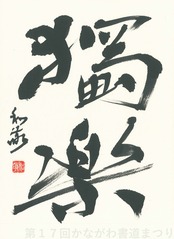 獨樂
第17回かながわ書道まつり